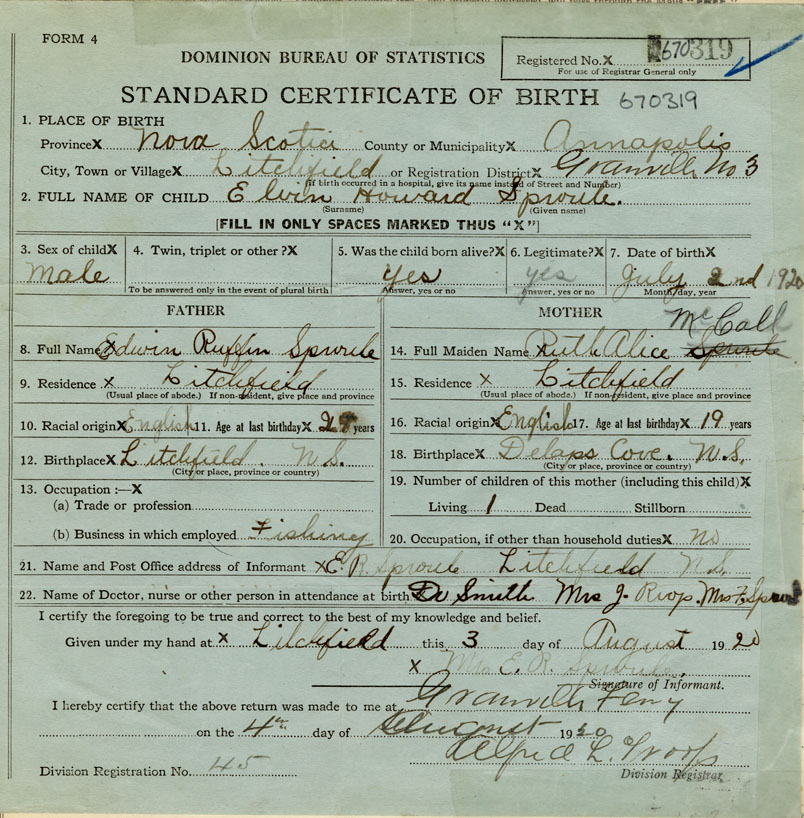 FORM 4
DOMINION BUREAU OF STATISTICS
Registered No. X 670319
For use of Registrar General only
STANDARD CERTIFICATE OF BIRTH 670319
1. PLACE OF BIRTH
Province X Nova Scotia County or Municipality X Annapolis
City, Town or Village X Litchfield or Registration District X Granville No 3
(If birth occurred in a hospital, give its name instead of Street and Number)
2. FULL NAME OF CHILD Elvin Howard Sproule.
(Surname) (Given name)
[FILL IN ONLY SPACES MARKED THUS "X"]
3. Sex of child X 4. Twin, triplet or other ? X 5. Was the child born alive? X 6. Legitimate? X 7. Date of birth X
Male yes yes July 2nd 1920
To be answered only in the event of plural birth Answer, yes or no Answer, yes or no Month, day, year
FATHER MOTHER
McCall
8. Full Name X Edwin Ruffin Sproule 14. Full Maiden Name Ruth Alice Sproule
9. Residence X Litchfield 15. Residence X Litchfield
(Usual place of abode.) If non-resident, give place and province (Usual place of abode.) If non-resident, give place and province
10. Racial origin X English 11. Age at last birthday X years 16. Racial origin X English 17. Age at last birthday X 19 years
12. Birthplace X Litchfield. N.S. 18. Birthplace X Delaps Cove. N.S.
(City or place, province or country) (City or place, province or country)
13. Occupation :—X 19. Number of children of this mother (including this child) X
(a) Trade or profession Living 1 Dead Stillborn
(b) Business in which employed Fishing 20. Occupation, if other than household duties X No
21. Name and Post Office address of Informant X E. R. Sproule Litchfield N.S.
22. Name of Doctor, nurse or other person in attendance at birth Dr Smith Mrs J. Mrs F. Sproul
I certify the foregoing to be true and correct to the best of my knowledge and belief.
Given under my hand at X Litchfield this 3 day of August 1920
X Mrs E. R. Sproule,
Signature of Informant.
I hereby certify that the above return was made to me at Granville Ferry
on the 4th day of August 1920
Alfred L. Troop
Division Registration No. 45 Division Registrar